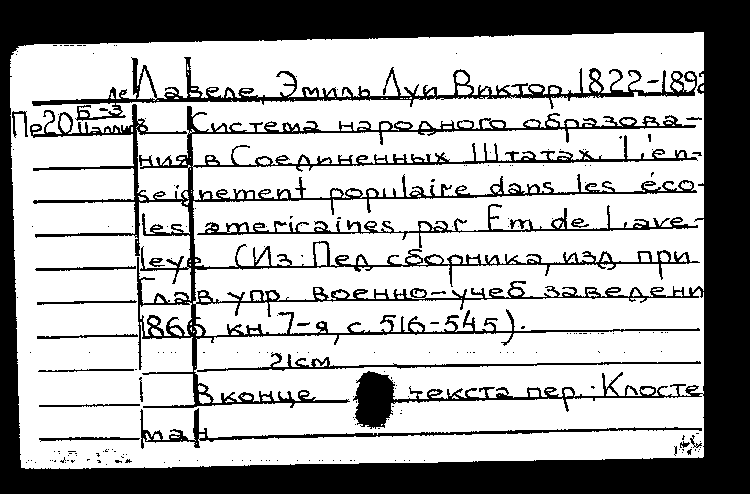 де Лавеле, Эмиль Луи Виктор, 1822-1892
Пе20 Б-3 Паллиs Система народного образова-
ния в Соединенных Штатах. L'en-
seignement populaire dans les éco-
les americaines, par Em. de Lave-
leye (Из: Пед сборника, изд. при
Глав. упр. военно-учеб заведени
1866, кн. 7-я, с. 516-545).
21см
В конце текста пер.: Клосте
ман